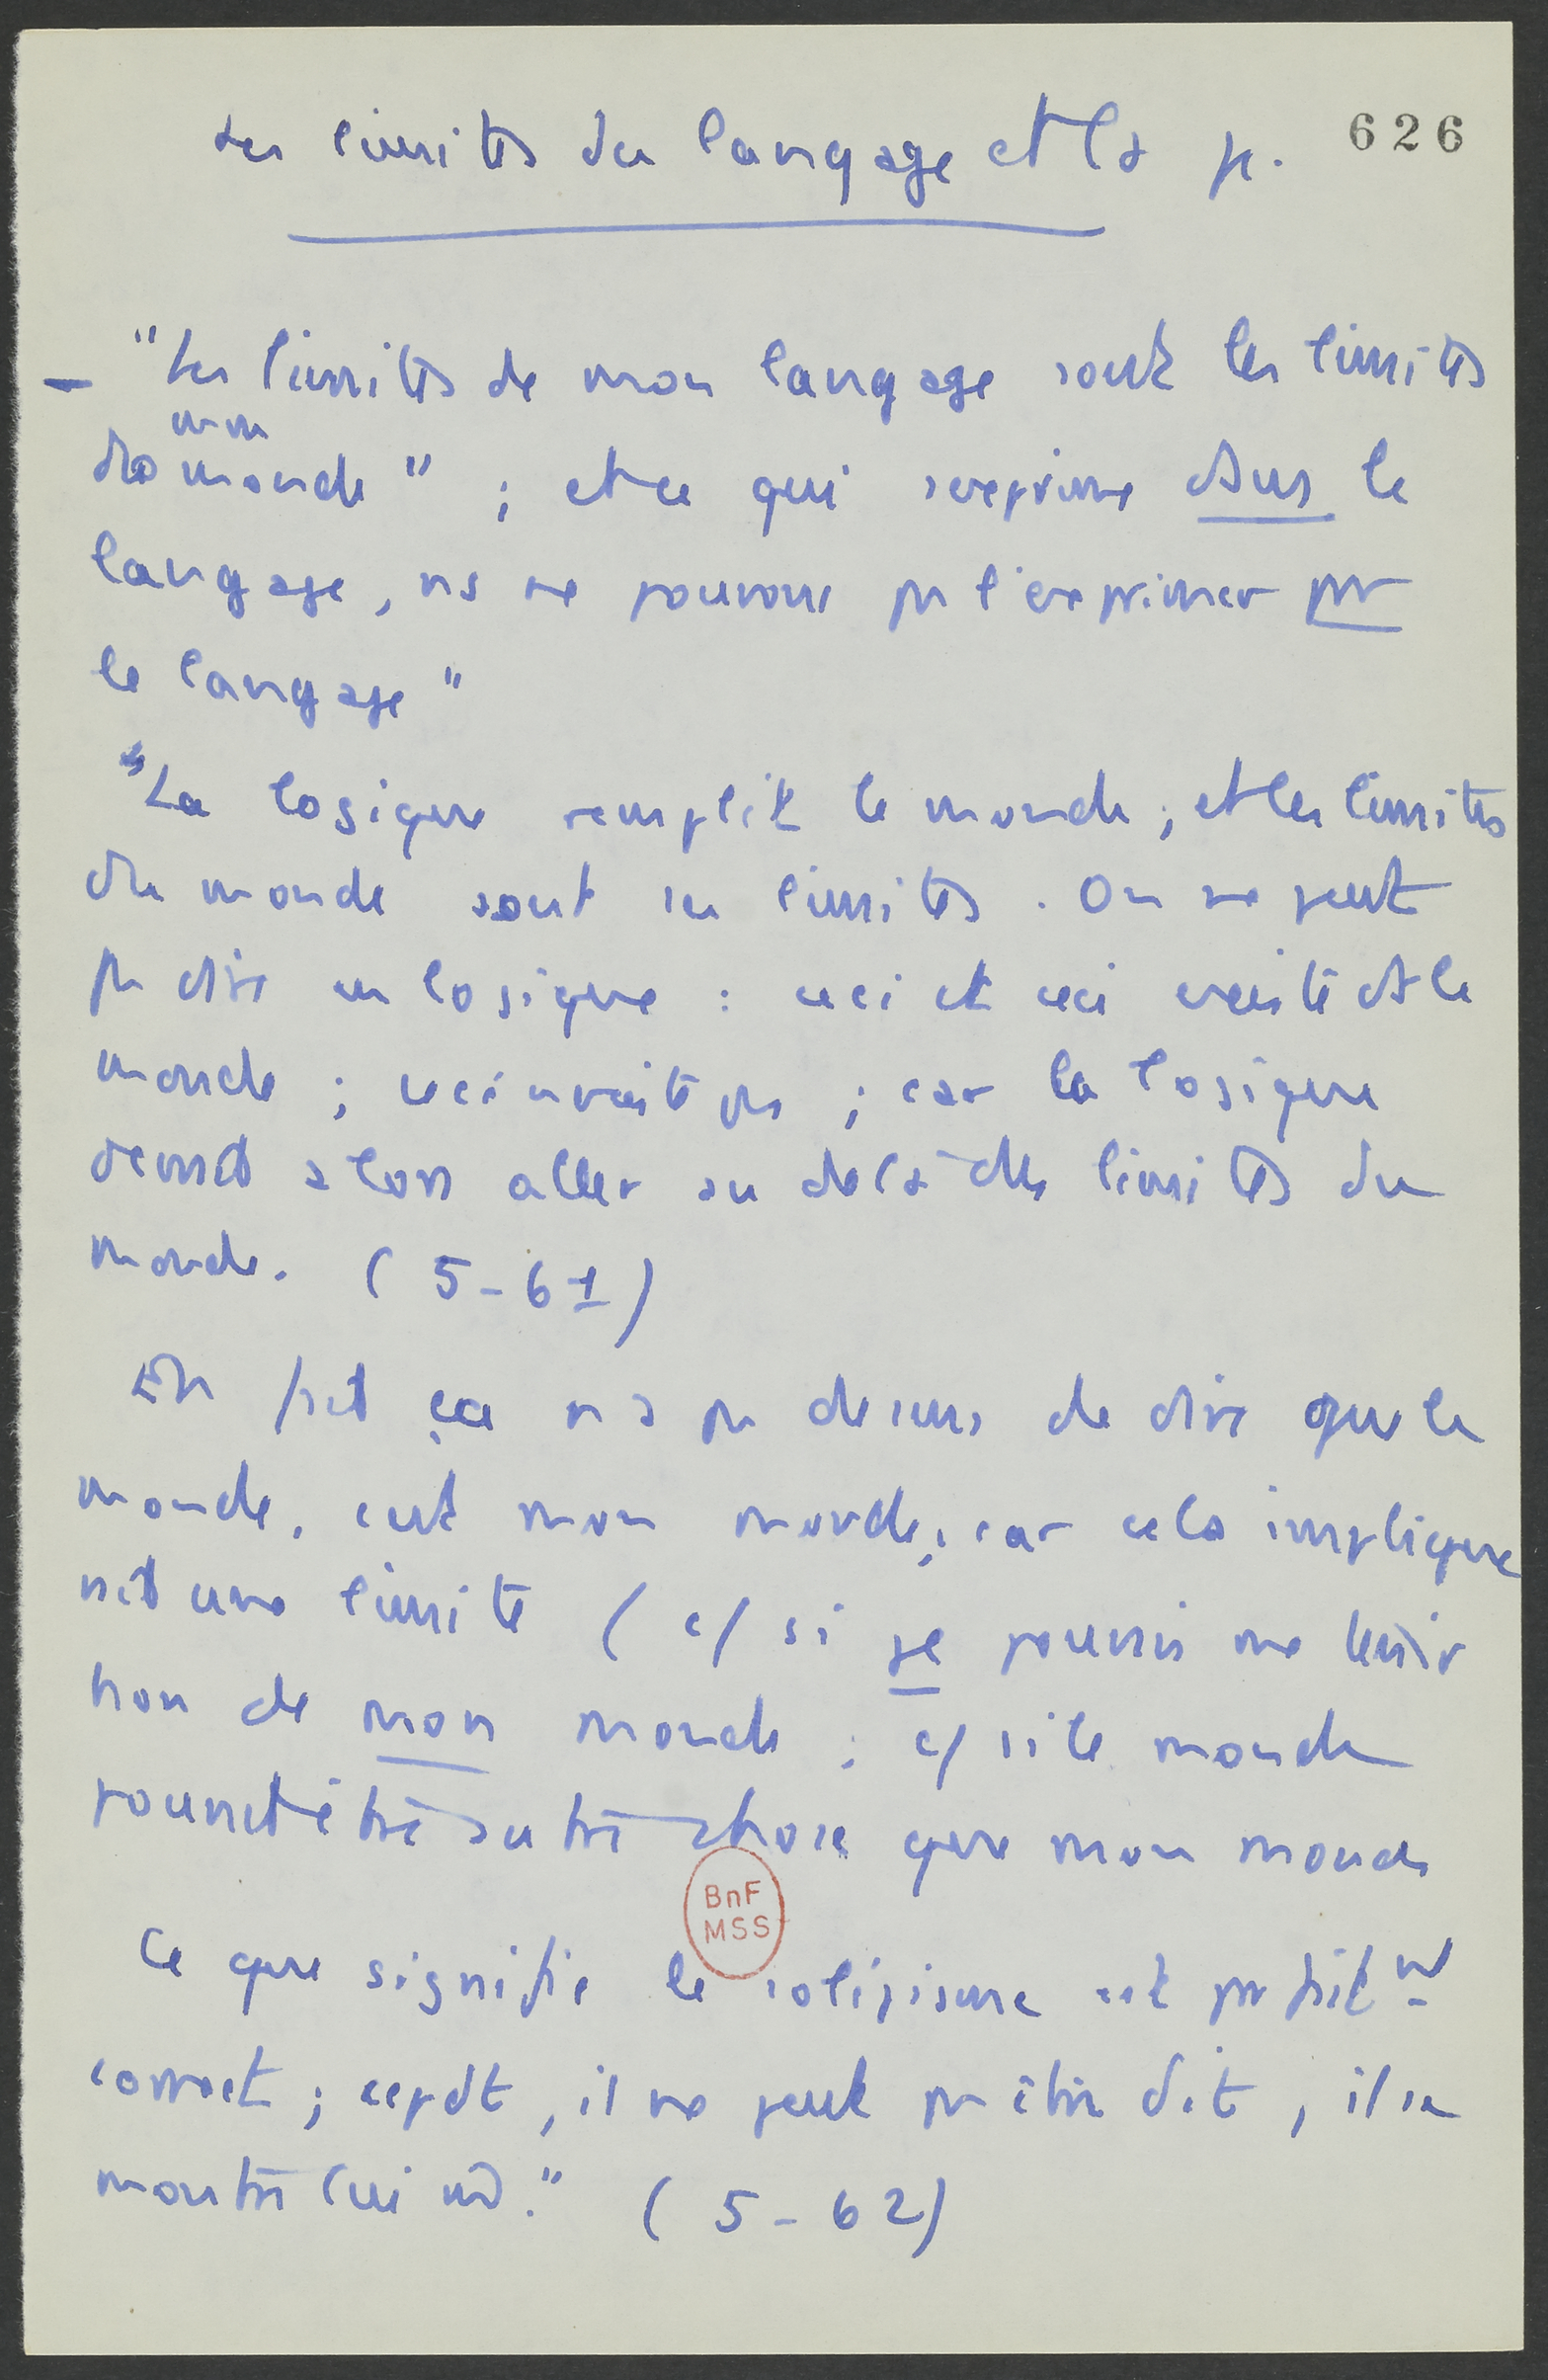 626
Les limites du langage et la φ.
– "Les limites de mon langage sont les limites
mon
du monde" ; et ce qui s'exprime dans le
langage, ns ne pouvons pas l'exprimer par
le langage"
"La logique remplit le monde ; et les limites
du monde sont ses limites. On ne peut
pas dire en logique : ceci et ceci existe ds le
monde ; ceci n'existe pas ; car la logique
devrait alors aller au delà des limites du
monde. (5-61)
En fait ça n'a pas de sens de dire que le
monde, c'est mon monde ; car cela implique
rait une limite (c/ si je pouvais me tenir
hors de mon monde ; c/ si le monde
pourrait être autre chose que mon monde
Ce que signifie le solipsisme est parfait nt
correct ; cepdt, il ne peut pas être dit, il se
montre lui m̂." (5-62)
BnF
MSS